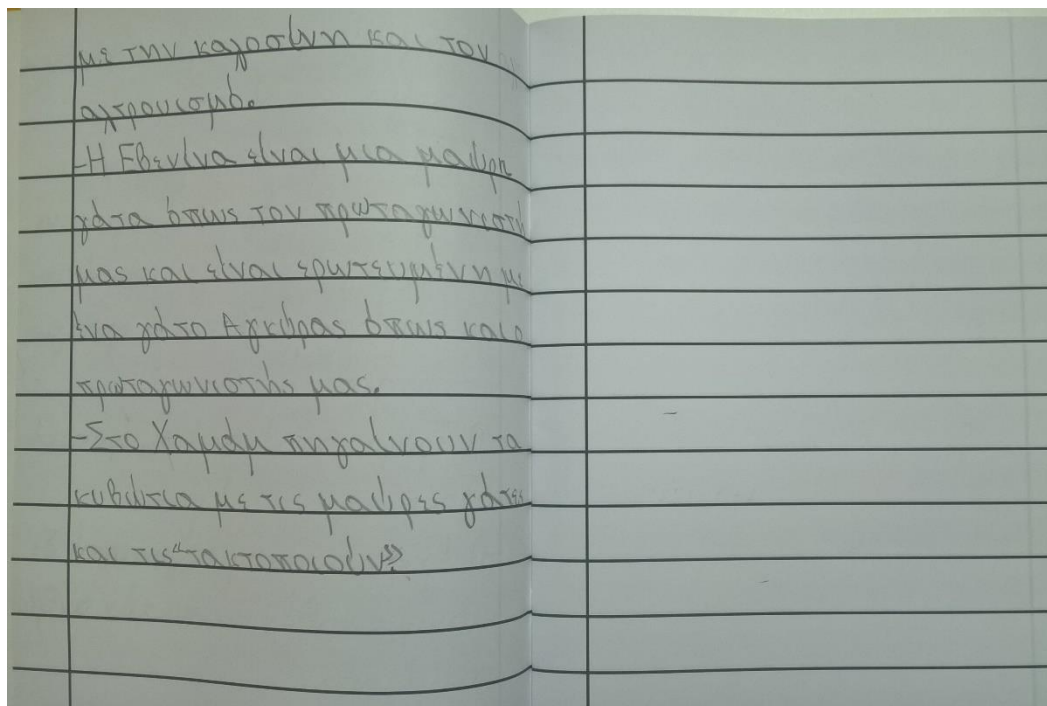 με την καλοσύνη και τον
αλτρουισμό.
-Η Εβενίνα είναι μια μαύρη
γάτα όπως τον πρωταγωνιστή
μας και είναι ερωτευμένη με
ένα γάτο Αγκύρας όπως και ο
πρωταγωνιστής μας.
-Στο Χαμάμ πηγαίνουν τα
κυβώτια με τις μαύρες γάτες
και τις "τακτοποιούν".